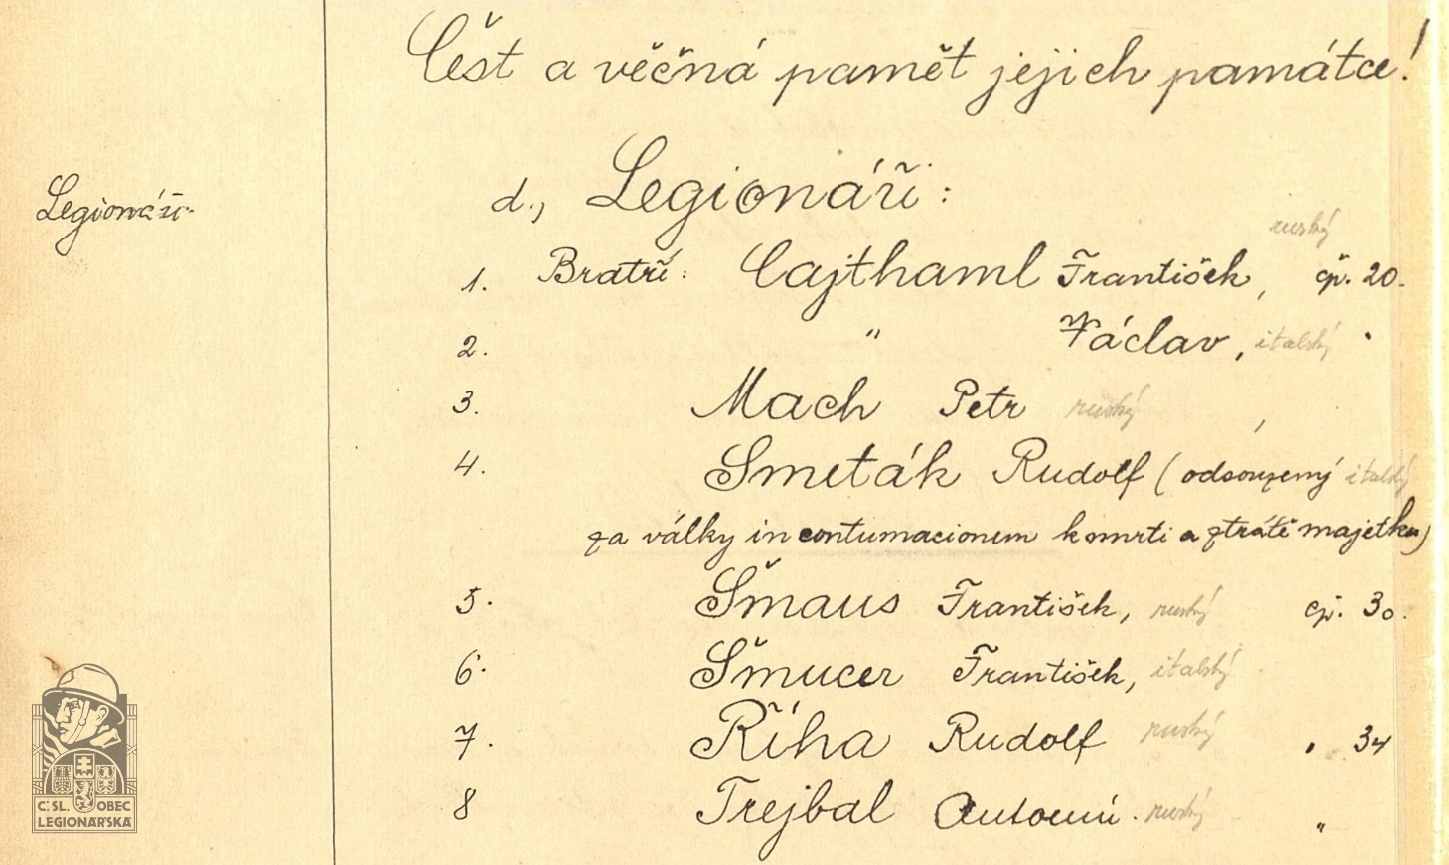 Čest a věčná paměť jejich památce!
Legionáři.
d., Legionáři:
ruský
1. Bratři: Cajthaml František, čp. 20.
2. " Václav, italský "
3. Mach Petr ruský ,
4. Smeták Rudolf (odsouzený italský
za války in contumacionem k smrti a ztrátě majetku)
5. Šmaus František, ruský čp. 30.
6. Šmucer František, italský
7. Říha Rudolf ruský " 34
8 Trejbal Antonín. ruský "
Č.SL. OBEC
LEGIONÁŘSKÁ